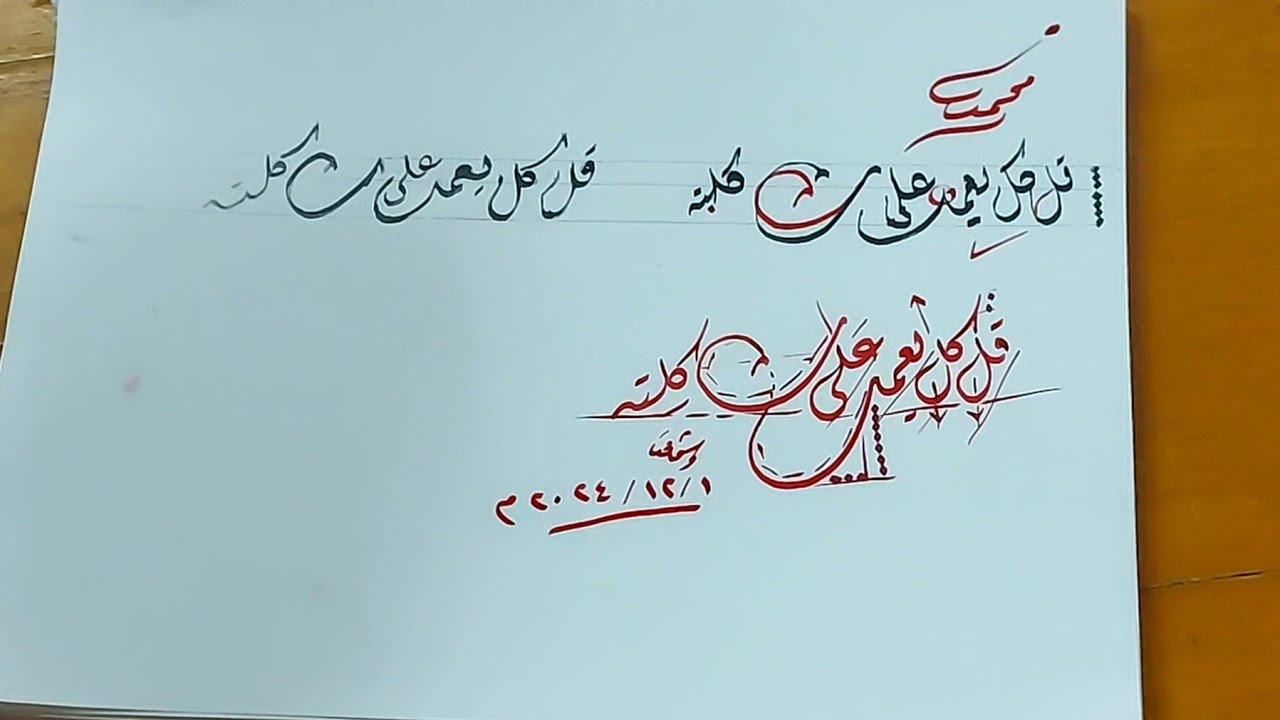 قل كل يعمل على شاكلته
قل كل يعمل على شاكلته
قل كل يعمل على شاكلته
١ / ١٢ / ٢٠٢٤ م